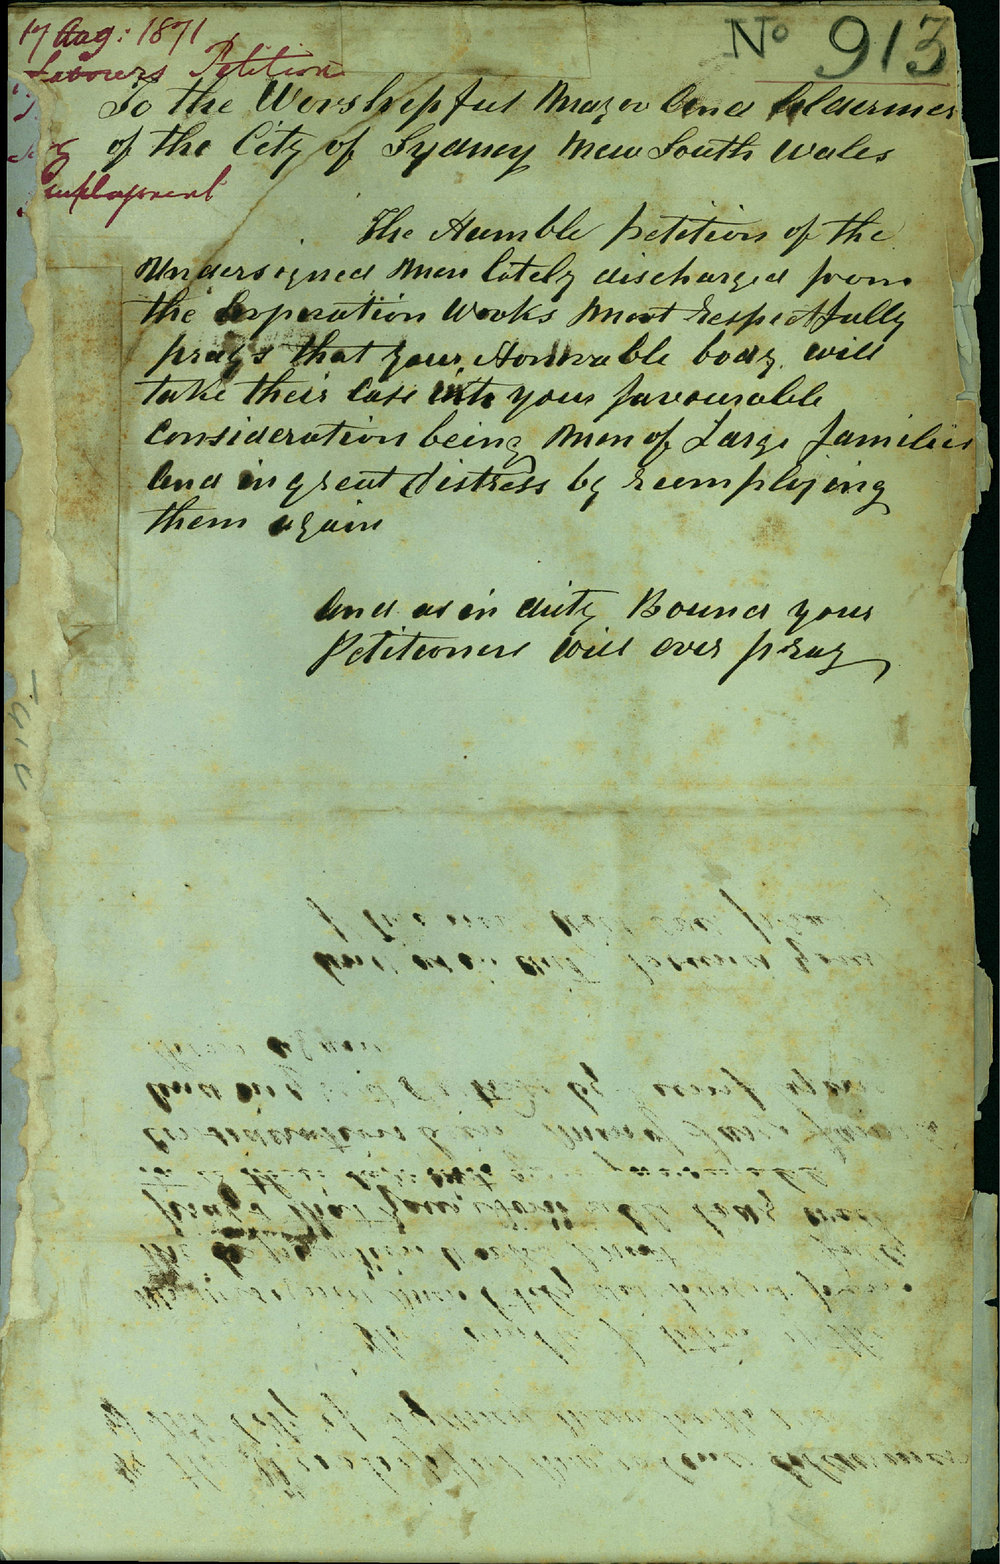 17 Aug: 1871
Nº 913
Labourers Petition
Employment
To the Worshepful Mayor And Aldermen
of the City of Sydney New South Wales
The Humble petition of the
Undersigned Men lately discharged from
the Corporation Works Most Respectfully
prays that your Honourable body will
take their Case into your favourable
Consideration being Men of Large families
And in great distress by Reemploying
them again
And as in duty Bound your
Petitioners will ever pray